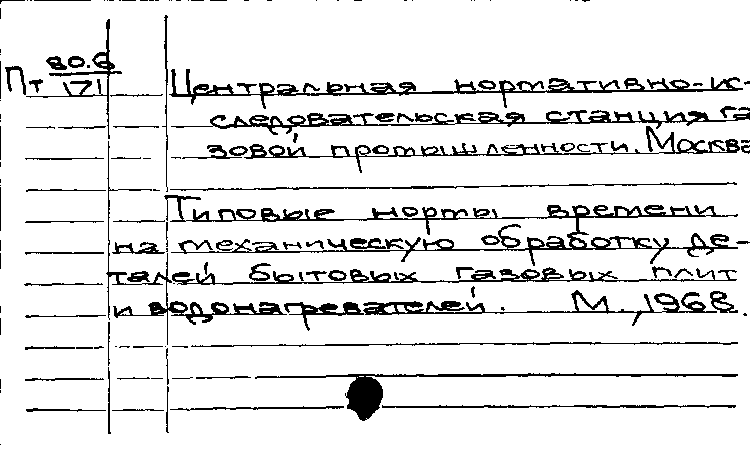 80.6
Пт 171
Центральная нормативно-ис-
следовательская станция га
зовой промышленности. Москва
Типовые норты времени
на механическую обработку де-
талей бытовых газовых плит
и водонагревателей. М., 1968.